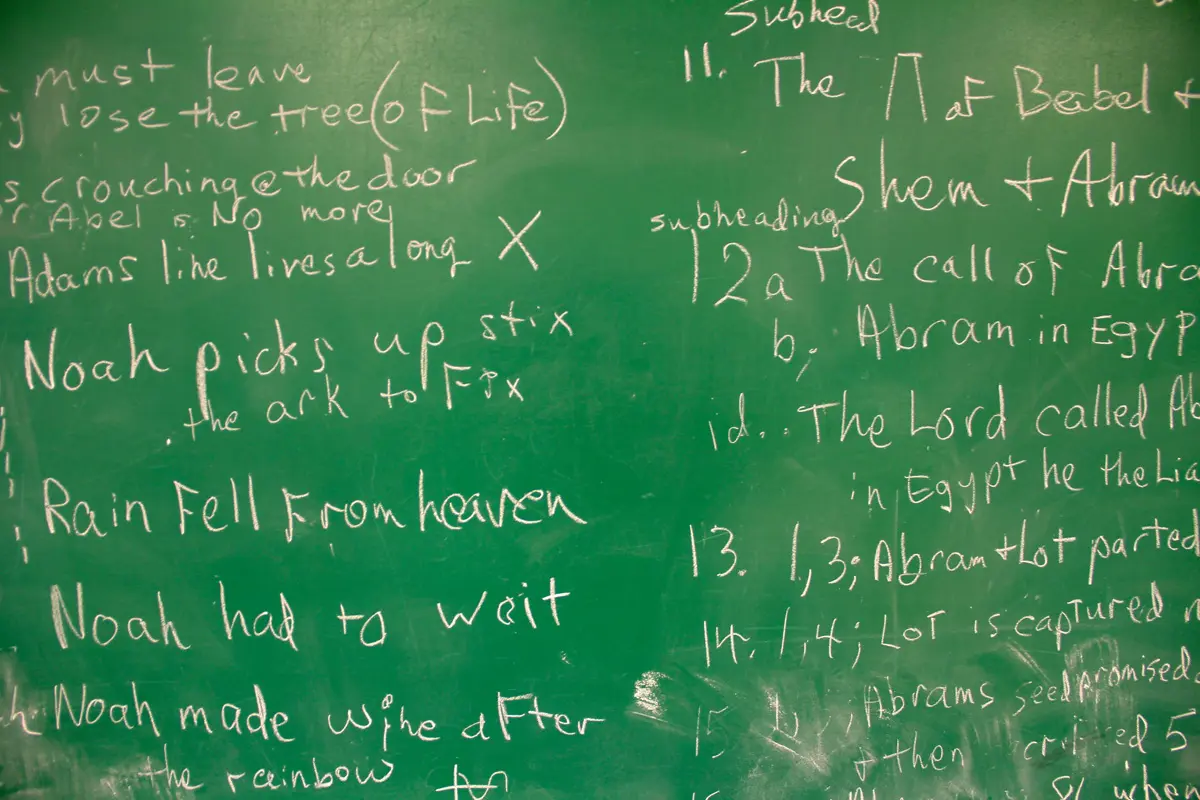 must leave
lose the tree (of Life)
s crouching @ the door
r Abel is No more
Adams line lives along X
Noah picks up stix
the ark to Fix
Rain Fell From heaven
Noah had to wait
h Noah made wine after
the rainbow
Subhead
11. The Π of Beabel +
Shem + Abram
subheading
12a The call of Abra
b, Abram in Egyp
1d. The Lord called Ab
in Egypt he the Lia
13. 1,3; Abram + Lot parted
14. 1,4; Lot is captured
15 Abrams seed promised
+ then 5
when